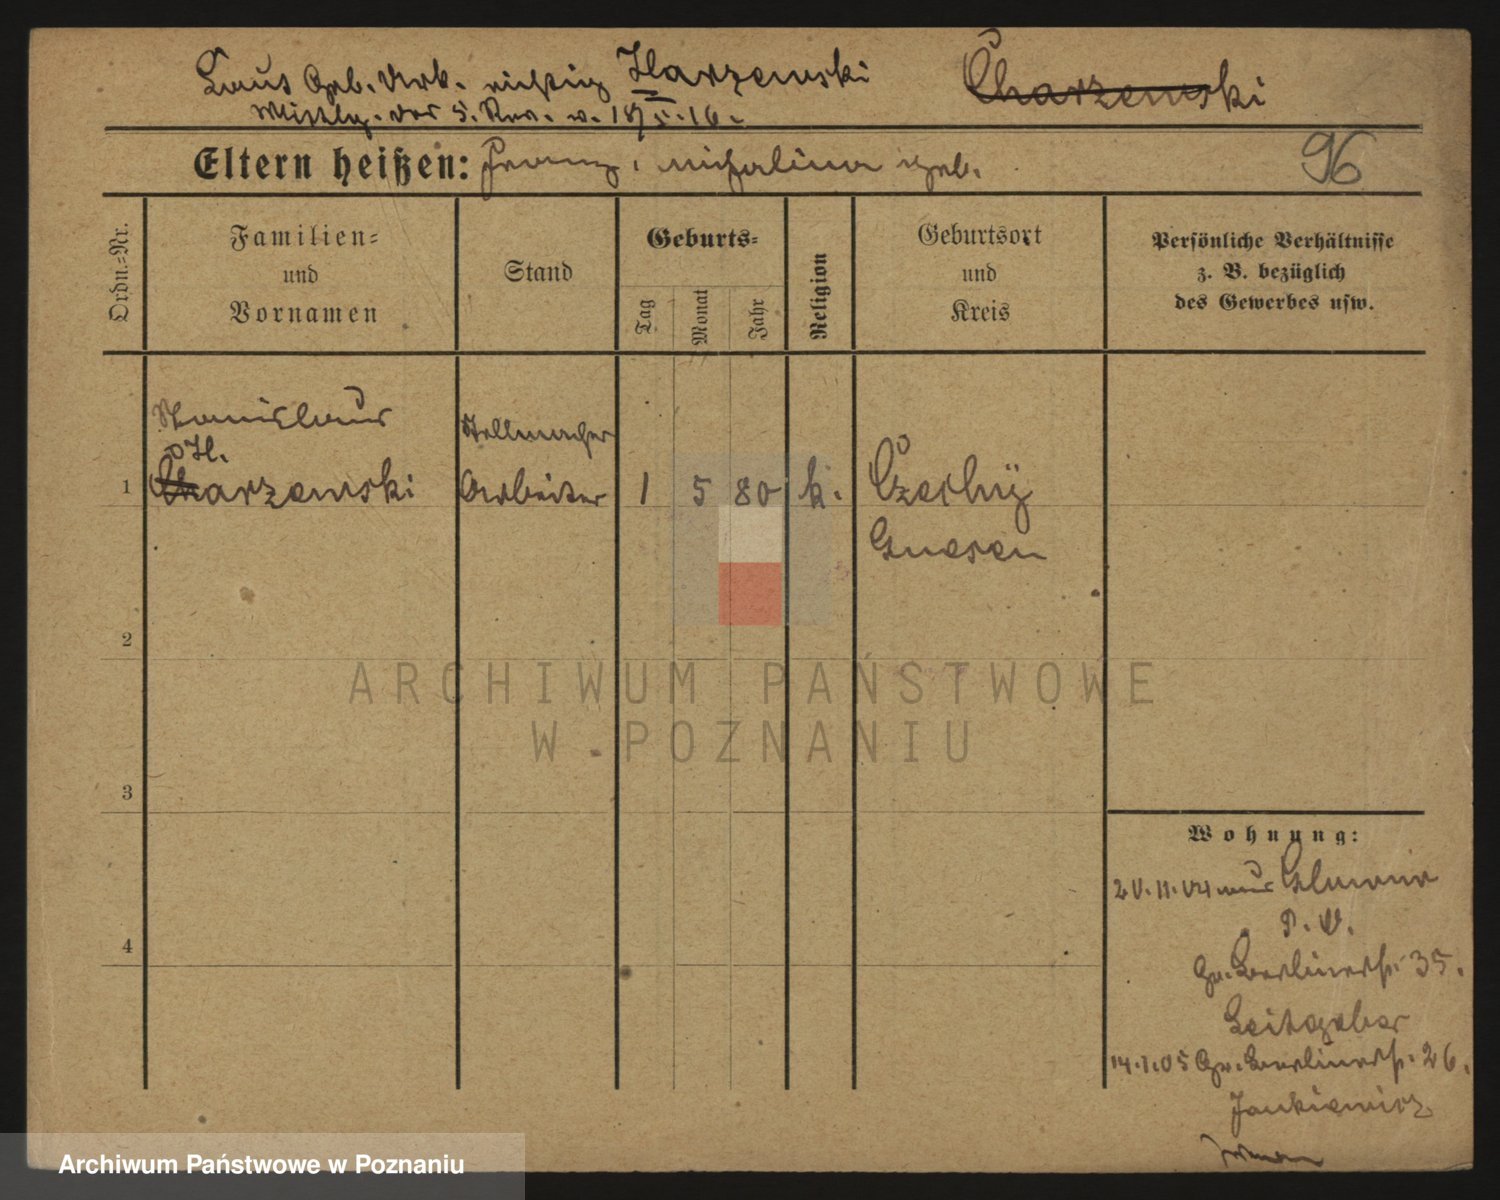 Laut Geb. Urk. richtig Harzewski
Charzewski
Mittlg. des 5. Rev. v. 18/5.16.
Eltern heißen: Franz, Michalina geb.
96
Ordn.-Nr.
Familien-
und
Vornamen
Stand
Geburts-
Tag
Monat
Jahr
Religion
Geburtsort
und
Kreis
Persönliche Verhältnisse
z. B. bezüglich
des Gewerbes usw.
Stanislaus
H.
1 Charzewski
Stellmacher
Arbeiter
1 5 80 k.
Czechy
Gnesen
2
3
4
Wohnung:
20.11.04 aus Glowno
P. O.
Gr. Berlinerstr. 35.
Leitgeber
14.1.05 Gr. Berlinerstr. 26.
Jankiewicz
ARCHIWUM PAŃSTWOWE
W POZNANIU
Archiwum Państwowe w Poznaniu